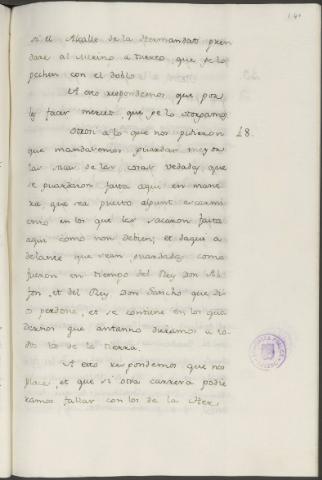 si el Alcalle de la Hermandat pren
dare al Merino a tuerto, que se lo
pechen con el doblo.
A esto respondemos que por
les facer merced, que se lo otorgamos.
Otrosi a lo que nos pidieron
que mandasemos guardar mejor
las sacas de las cosas vedadas que
se guardaron fasta aqui en mane
ra que sea puesto algunt escarmi
ento en los que las sacaron fasta
aqui como non debien; et daqui a
delante que sean guardadas como
fueron en tiempo del Rey Don Al
fon, et del Rey Don Sancho que Di
os perdone, et se contiene en los qua
dernos que antanno diemos a to
dos los de la tierra.
A esto respondemos que nos
place, et que si otra carrera podie
ramos fallar con los de la Her
18.